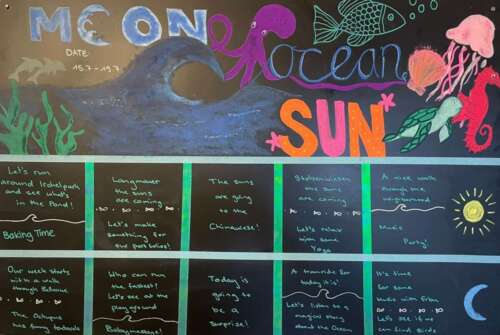 MOON
ocean
SUN
DATE:
15.7 - 19.7
Let's run
around
and see what's
in the Pond!
Baking Time
the suns
are coming
Let's make
something for
the
The suns
are going
to the
Chineewiese!
the suns
are coming
Let's relax
with some
Yoga
A nice walk
through the
Music
Party!
Our week starts
with a walk
through
The Octopus
has funny tentacels
Who can run
the fastest!
Let's see at the
playground
Babymassage!
Today is
going to
be a
Surprise!
A tramride for
today it is!
Let's listen to a
magical story
about the Ocean
It's time
for some
Music with
Let's see if we
can find Birds